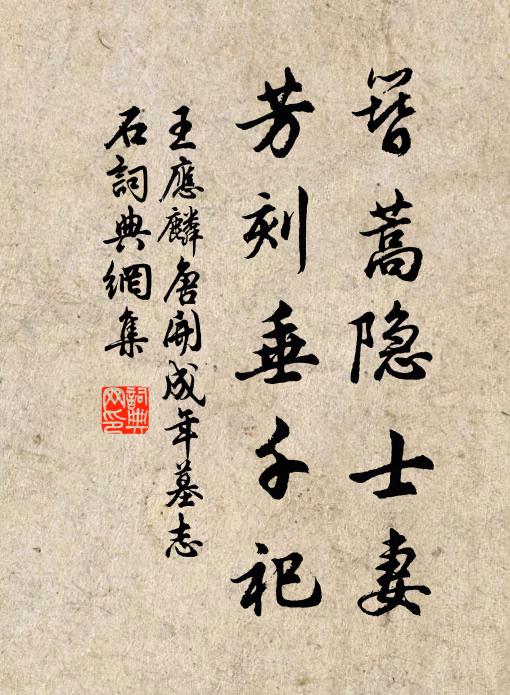 簪蒿隐士妻
芳刻垂千祀
王應麟唐開成年墓志
石詞典網集
詞典網印